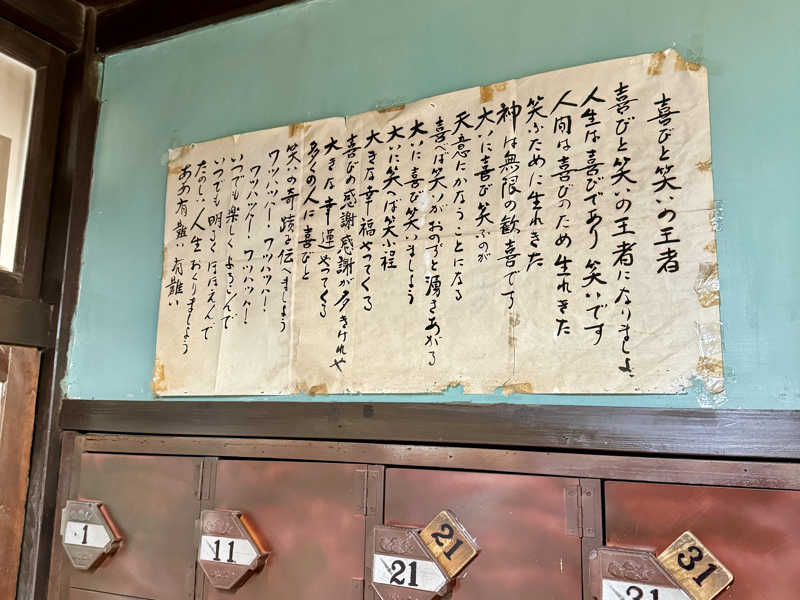 喜びと笑いの王者
喜びと笑いの王者になりましょ
人生は喜びであり 笑いです
人間は喜びのため 生れきた
笑ふために生れきた
神は無限の歓喜です
大いに喜び笑ふのが
天意にかなうことになる
喜べば笑いがおのずと湧きあがる
大いに喜び笑いましょう
大いに笑へば笑ふ程
大きな幸福やってくる
喜びの感謝感謝が多きけれや
大きな幸運やってくる
多くの人に喜びと
笑いの奇蹟を伝へましよう
ワツハツハー ワツハツハー
ワツハツハー ワツハツハー
いつでも楽しくよろこんで
いつでも明るくほほえんで
たのしい人生おくりましよう
ああ有難い 有難い
1
11
21
21
31
31